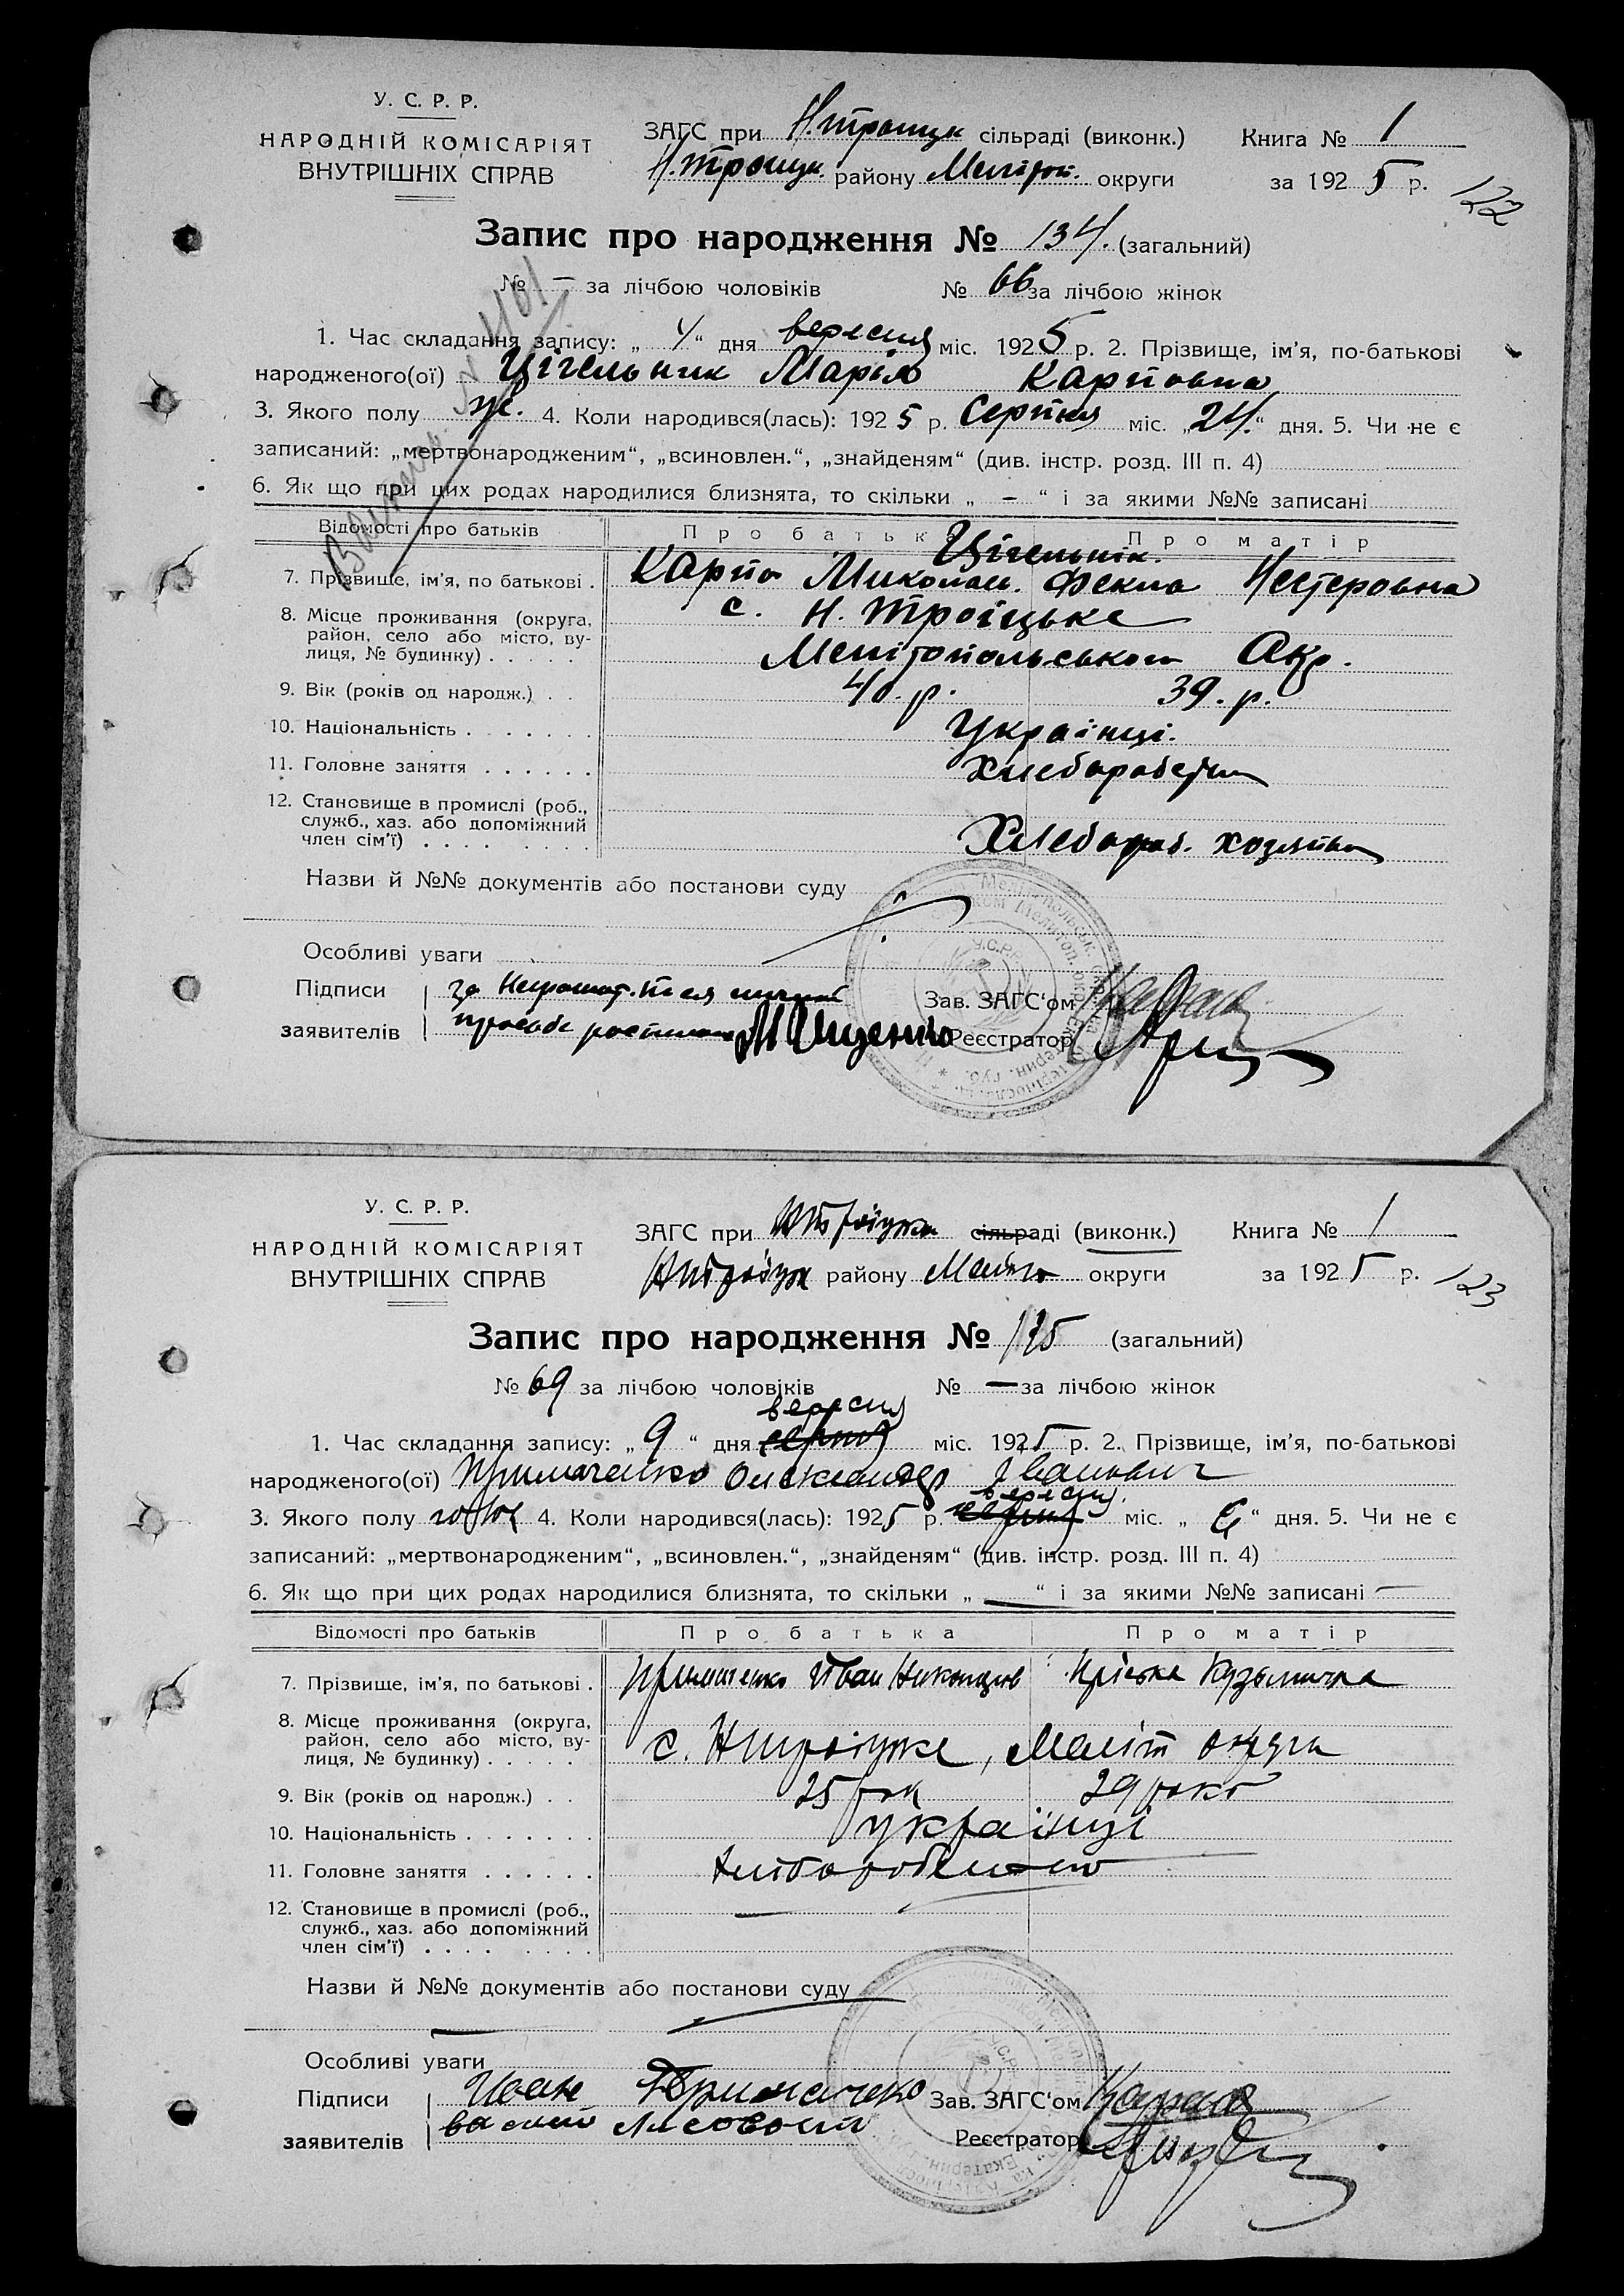 У. С. Р. Р.
НАРОДНІЙ КОМІСАРІЯТ
ВНУТРІШНІХ СПРАВ
ЗАГС при Н.Троицк сільраді (виконк.) Книга № 1
Н.Троицк. району Мелітоп. округи за 1925 р.
122
Запис про народження № 134. (загальний)
№ – за лічбою чоловіків № 66 за лічбою жінок
1. Час складання запису: „ 4 “ дня вересня міс. 1925 р. 2. Прізвище, ім’я, по-батькові
народженого(ої) Цігельник Марія Карповна
3. Якого полу ж. 4. Коли народився(лась): 1925 р. Серпня міс. „24.“ дня. 5. Чи не є
записаний: „мертвонародженим“, „всиновлен.“, „знайденям“ (див. інстр. розд. III п. 4)
6. Як що при цих родах народилися близнята, то скільки „ – “ і за якими №№ записані
Відомості про батьків Про батька Про матір
Цігельнік.
7. Прізвище, ім’я, по батькові . Карпо Миколаев. Фекла Нестеровна
8. Місце проживання (округа, с. Н. Троіцьке
район, село або місто, ву-
лиця, № будинку) . . . . . Мелітопольськом Окр.
9. Вік (років од народж.) . . 40. р. 39. р.
10. Національність . . . . . . . Українці.
11. Головне заняття . . . . . .
12. Становище в промислі (роб.,
служб., хаз. або допоміжний
член сім’ї) . . . . . . . . Хлебороб.
Назви й №№ документів або постанови суду
Особливі уваги
Підписи за
заявителів
Зав. ЗАГС‘ом
Реєстратор
У. С. Р. Р.
НАРОДНІЙ КОМІСАРІЯТ
ВНУТРІШНІХ СПРАВ
ЗАГС при сільраді (виконк.) Книга № 1
району округи за 1925 р.
123
Запис про народження № 135 (загальний)
№ 69 за лічбою чоловіків № — за лічбою жінок
вересня
1. Час складання запису: „ 9 “ дня серпня міс. 1925 р. 2. Прізвище, ім’я, по-батькові
народженого(ої) Примаченко Олександр Іванович
вересня.
3. Якого полу чол 4. Коли народився(лась): 1925 р. серпня міс. „ 6 “ дня. 5. Чи не є
записаний: „мертвонародженим“, „всиновлен.“, „знайденям“ (див. інстр. розд. III п. 4)
6. Як що при цих родах народилися близнята, то скільки „ — “ і за якими №№ записані —
Відомості про батьків Про батька Про матір
7. Прізвище, ім’я, по батькові . Примаченко Иван
8. Місце проживання (округа,
район, село або місто, ву-
лиця, № будинку) . . . . . с. Нтроіцьке, Меліт округи
9. Вік (років од народж.) . . 25 рок 29 рокв
10. Національність . . . . . . . українці
11. Головне заняття . . . . . .
12. Становище в промислі (роб., —
служб., хаз. або допоміжний
член сім’ї) . . . . . . . .
Назви й №№ документів або постанови суду
Особливі уваги
Підписи Иван Примаченко
заявителів Лисовои
Зав. ЗАГС‘ом
Реєстратор